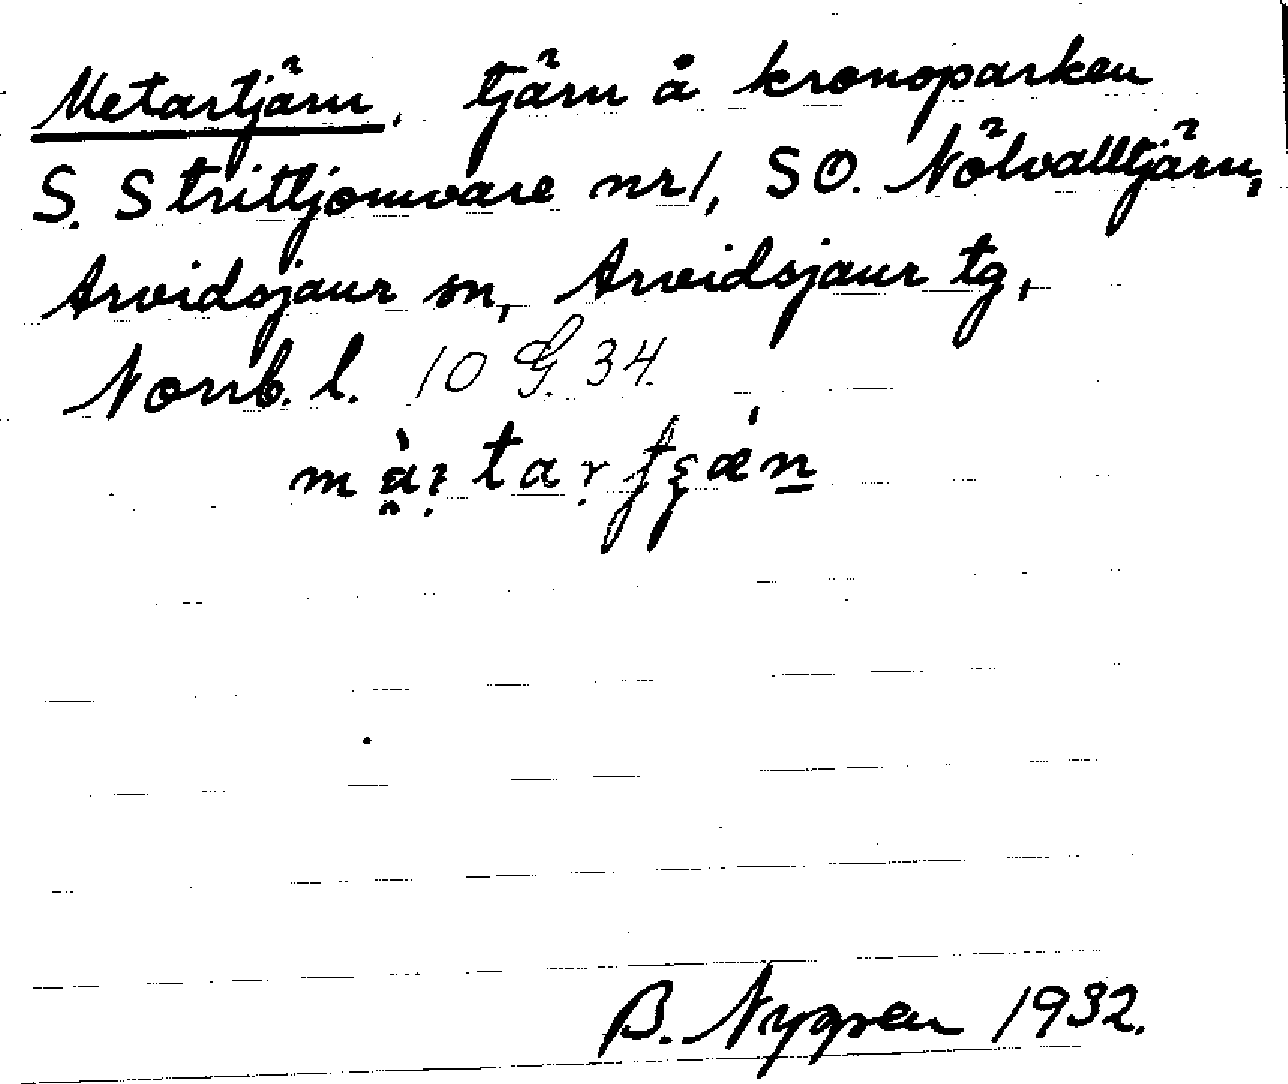 Metartjärn, tjärn å kronoparken
S. Strittjomvare nr 1, SO. Nölvalltjärn,
Arvidsjaur sn, Arvidsjaur tg,
Norrb. l. 10 G. 34.
B. Nygren 1932.